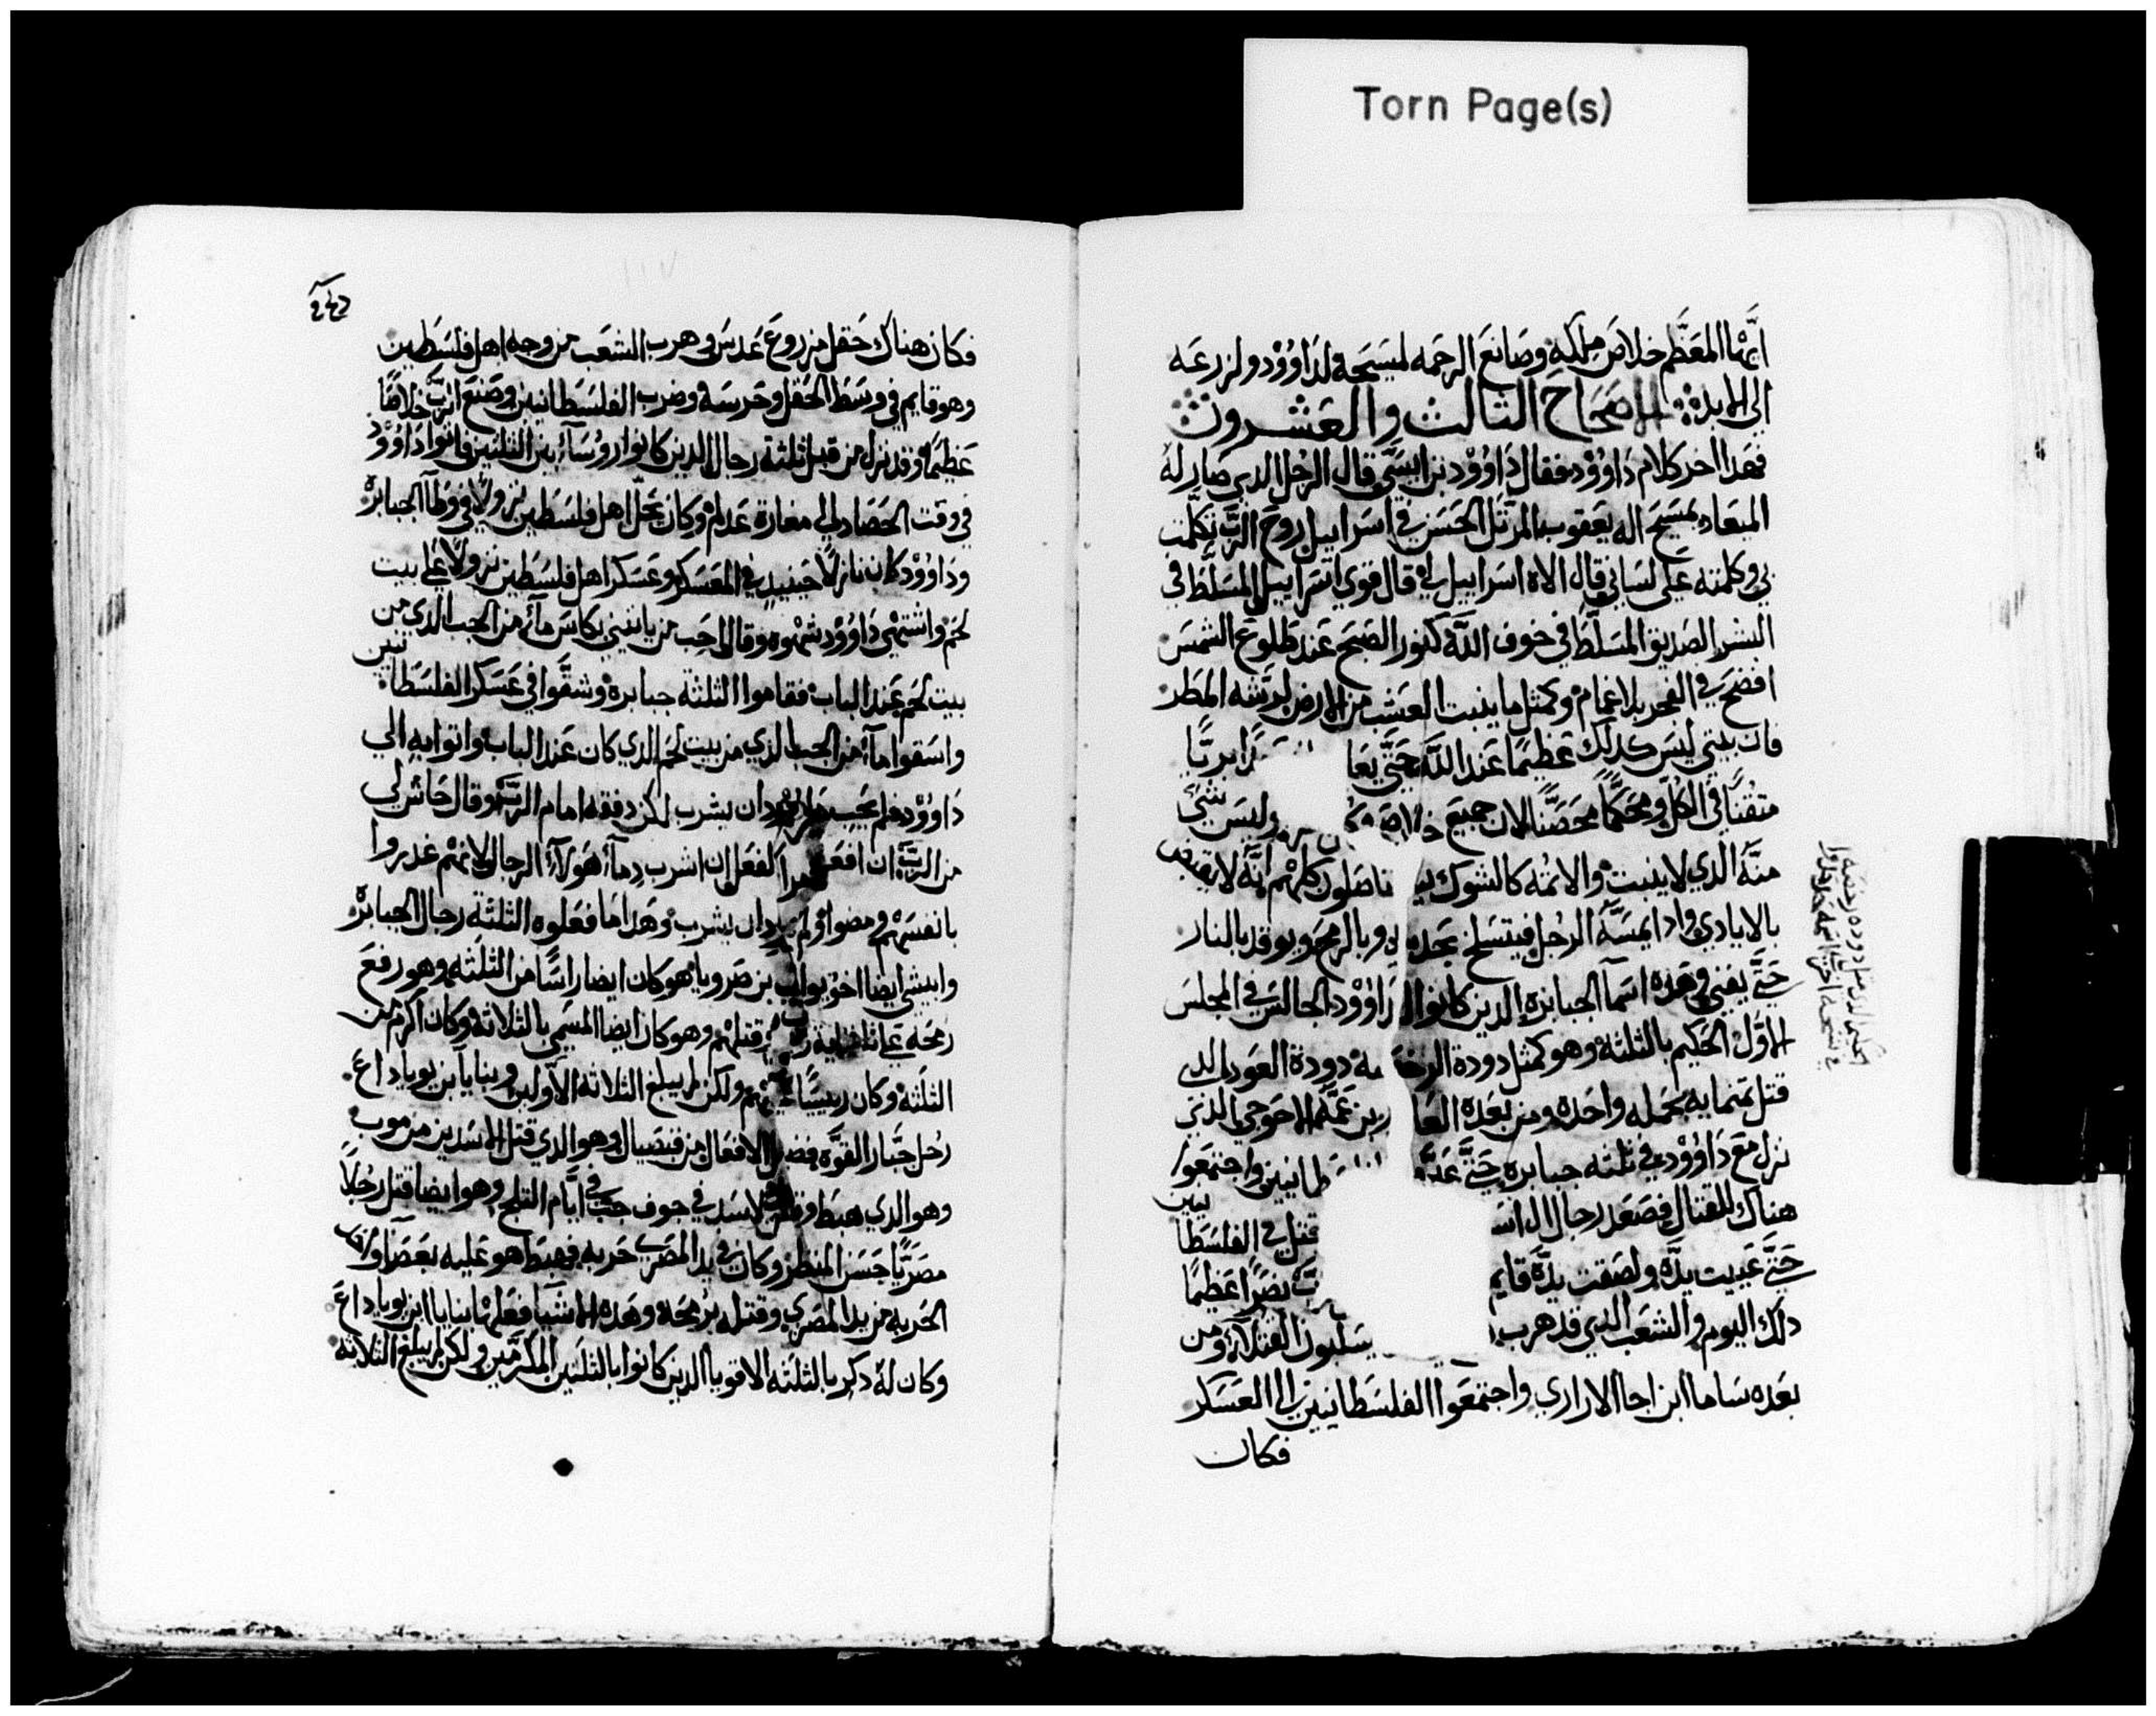 Torn Page(s)
ايها المعظم خلاص ملكه وصانع الرحمه لمسيحه لداوُوْد ولزرعه
الي الابد الاصحاح التالت والعشرون
فهدا اخر كلام داوُوْد فقال داوُوْد بن ايسّي قال الرجل الدي صار له
الميعاد لمسيح اله يعقوب المرتل الحسن في اسراييل روح الربّ تكلمت
بي وكلمته علي لساني قال الاه اسراييل لي قال قوي اسراييل المسلّط في
البشر الصديق المسلّط في خوف الله كنور الصبح عند طلوع الشمس
افضح في الفجر بلا غمام وكمثل ما ينبت العشب من الارض لرشه المطر
فان بيتي ليس كدلك عظيمًا عند الله حتّي يعا ابريّا
متقنًا في الكلّ ومحكمًا محصّنًا لان جميع خلاص وليس شي
منّه الدي لا ينبت والاتمه كالشوك كلهم انّه لا
بالايادي وادا يمسّه الرجل فيتسلح بحديد وبالرمح ويوقد بالنار
حتّي يفني وهده اسما الجبابره الدين كانوا لداوُوْد الجالس في المجلس
الاوّل الحكيم بالتلته وهو كمتل دودة العود الدي
قتل تمنمايه بحمله واحده ومن بعده العا ر بن عمّه الاحوحي الدي
نزل مع داوُوْد في تلته جبابره حتّي طانيين واجتمعوا
هناك للقتال فصعد رجال ال اس قتل في الفلسطانيين
حتّي عييت يدّه ولصقت يدّه قايم بّ نصرًا عظيمًا
دلك اليوم والشعب الدي قد هرب يسلبون القتلاء ومن
بعده ساما ابن اجا الاراري واجتمعوا الفلسطانيين الي العسكر
فكان
فكان هناك حقل مزروع عدس وهرب الشعب من وجه اهل فلسطين
وهو قايم في وسط الحقل وحرسه وضرب الفلسطانيين وصنع الربّ خلاصًا
عظيمًا وقد نزل من قبل تلتة رجال الدين كانوا روُساء بين التلتين فاتوا داوُوْد
في وقت الحصاد الي مغارة عدلام وكان محلّ اهل فلسطين نزولًا في وطا الجبابره
وداوُوْد كان نازلًا حينيد في المعسكر وعسكر اهل فلسطين نزولًا علي بيت
لحم واشتهي داوُوْد شهوه وقال احب من ياتيني بكاس ماء من الجب الدي من
بيت لحم عند الباب فقاموا التلتة جبابره وشقّوا في عسكر الفلسطانيين
واسقوا ماء من الجب الدي من بيت لحم الدي كان عند الباب واتوا به الي
داوُوْد فلم يحب ان يشرب لكن دفقه امام الربّ وقال حاش لي
من الربّ ان افعل ان اشرب دماء هولاء الرجال لانهم غدروا
بانفسهم ومضوا ان يشرب وهدا ما فعلوه التلتة رجال الجبابره
وابيشي ايضا اخو يواب بن صرويا هو كان ايضا راسًا من التلته وهو رفع
رمحه علي تلتماية قتلهم وهو كان ايضا المسمي بالتلاته وكان اكرم من
التلته وكان رييسًا ولكن لم يبلغ التلاته الاوّلين وبنايا بن يوياداع
رجل جبّار القوّه الافعال من قبصيال وهو الدي قتل الاسدين من موب
وهو الدي هبط وقتل الاسد في جوف جب في ايّام التلج وهو ايضا قتل رجلًا
مصريًّا حسن المنظر وكان في يد المصري حربه فهبط هو عليه بعصا
الحربه من يد المصري وقتله برمحه وهده الاشيا فعلها بنايا ابن يوياداع
وكان له دكر بالتلته الاقويا الدين كانوا بالتلتين المكرّمين ولكن لم يبلغ التلاته